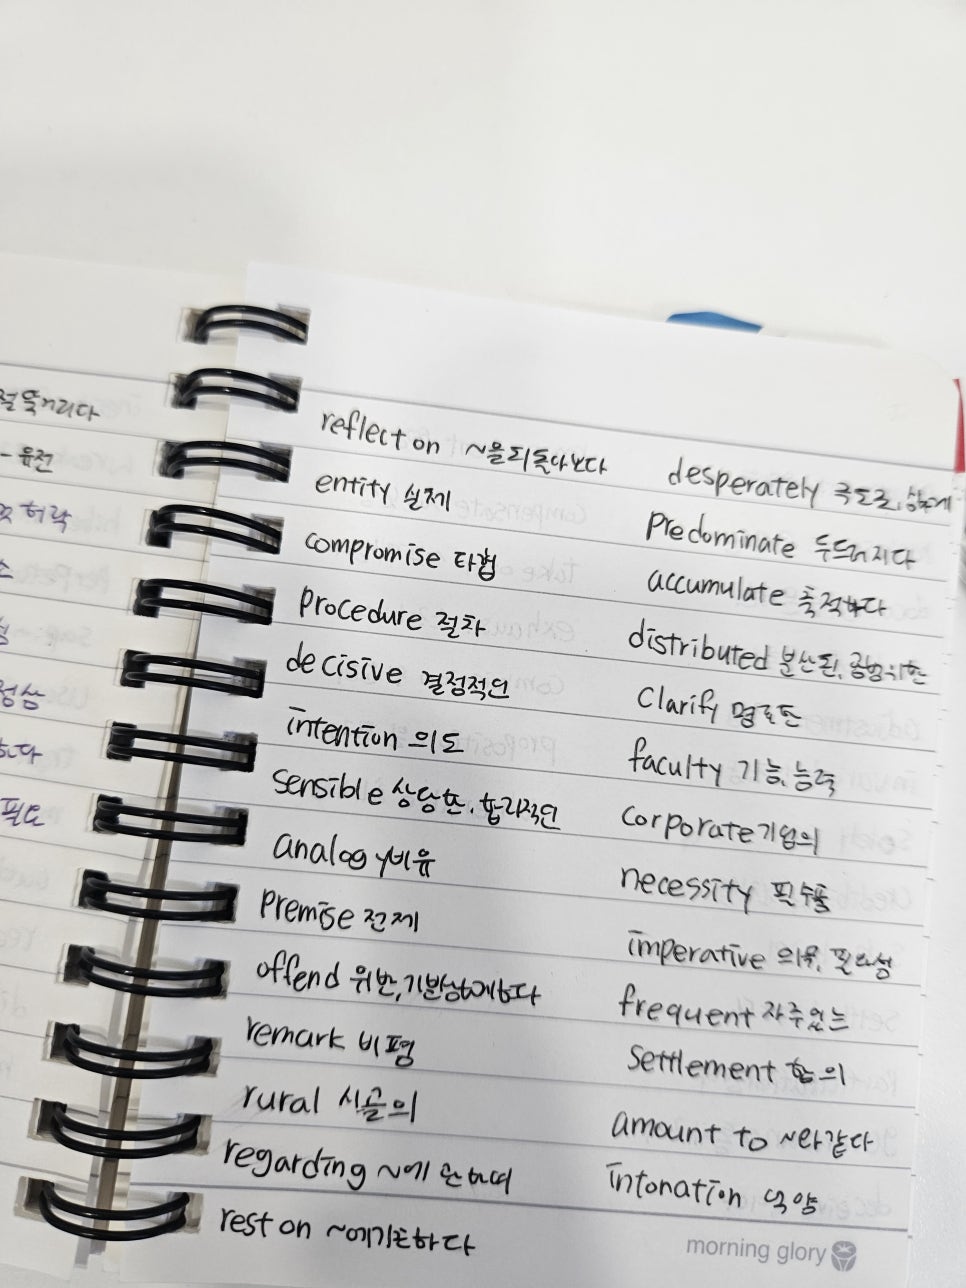 절뚝거리다
- 유전
허락
정상
필요
reflect on ~을 되돌아보다
entity 실체
compromise 타협
procedure 절차
decisive 결정적인
intention 의도
sensible 상당한, 합리적인
analogy 비유
premise 전제
offend 위반, 기분상하게하다
remark 비평
rural 시골의
regarding ~에 관하여
rest on ~에기초하다
desperately 극도로, 심하게
predominate 두드러지다
accumulate 축적하다
distributed 분산된, 광범위한
clarify 명료한
faculty 기능, 능력
corporate 기업의
necessity 필수품
imperative 의무, 필요성
frequent 자주있는
settlement 합의
amount to ~와같다
intonation 억양
morning glory